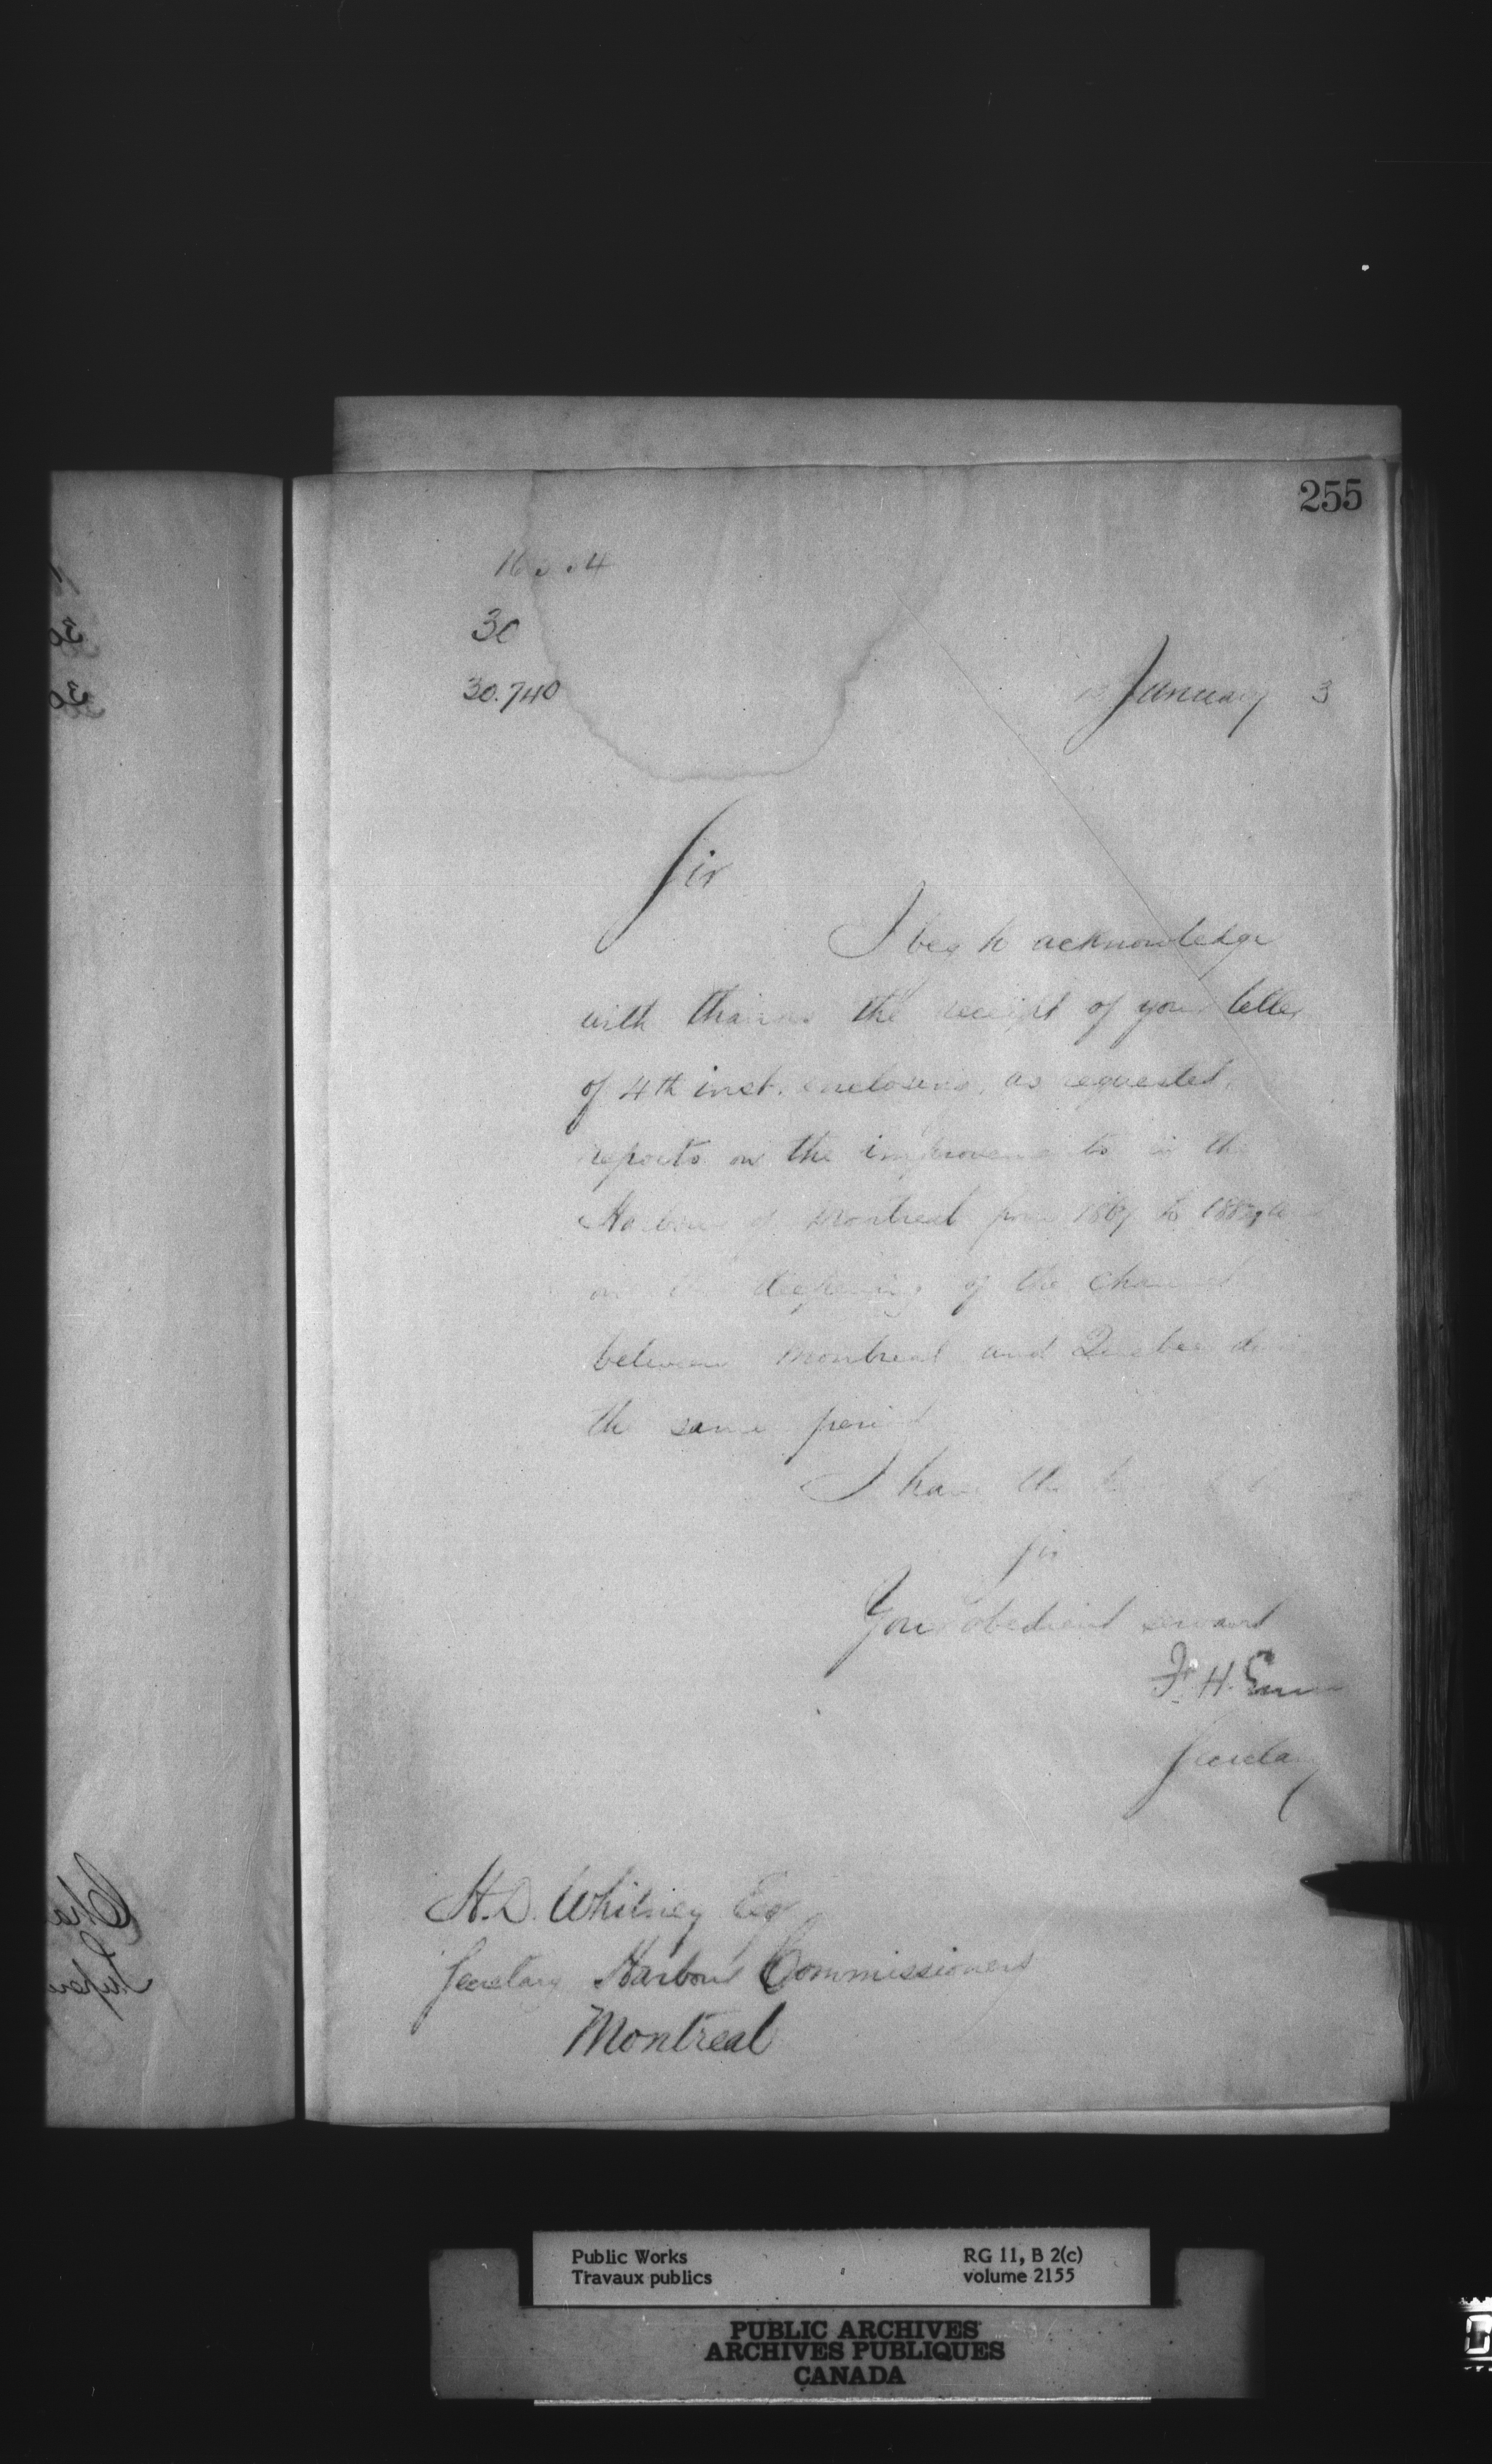 255
30
30.740
January 3
Sir
I beg to acknowledge
with thanks the receipt of your letter
of 4th inst. enclosing, as requested,
reports on the improvements in the
Harbour of Montreal from 1867 to
on the deepening of the Channel
between Montreal and Quebec
the same period
I have the
Sir
Your obedient servant
F. H. Ennis
Secretary
H. D. Whitney Esq
Secretary Harbour Commissioners
Montreal
Public Works
Travaux publics
RG 11, B 2(c)
volume 2155
PUBLIC ARCHIVES
ARCHIVES PUBLIQUES
CANADA